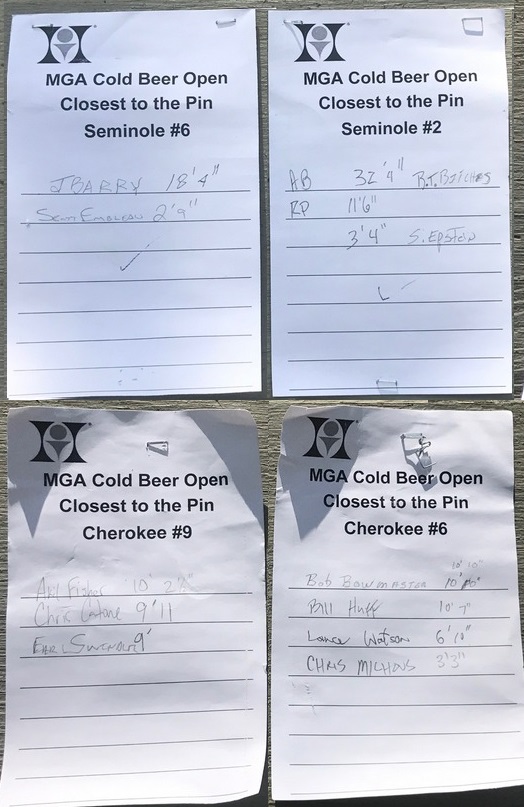 MGA Cold Beer Open
Closest to the Pin
Seminole #6
J BARRY 18'4"
2'9"
MGA Cold Beer Open
Closest to the Pin
Seminole #2
AB 32'4"
RP 11'6"
3'4" S. EPSTEIN
MGA Cold Beer Open
Closest to the Pin
Cherokee #9
Art Fisher 10'
Chris 9'11
EARL 9'
MGA Cold Beer Open
Closest to the Pin
Cherokee #6
10' 10"
Bob BOWMASTER 10'
Bill Huff 10' 7"
Lance Watson 6'10"
CHRIS 3'3"